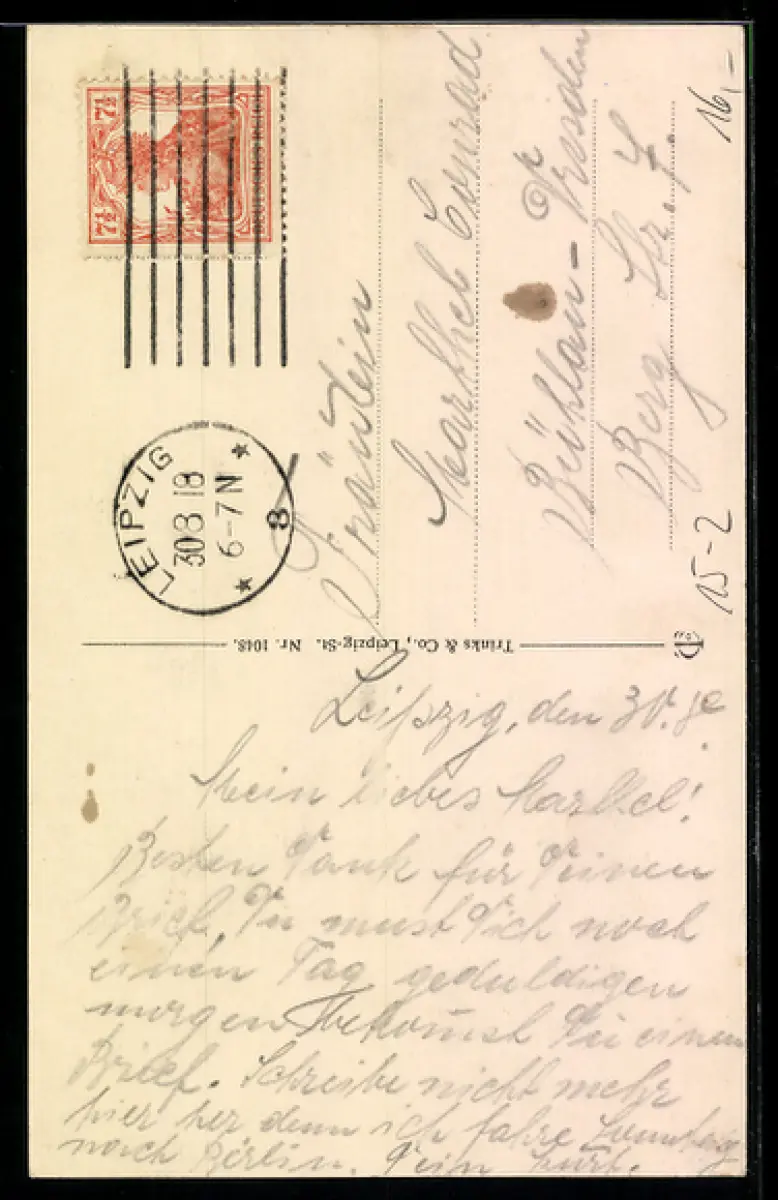 7½ 7½
DEUTSCHES REICH
LEIPZIG
30 8 18
6-7 N
* 8 *
Fräulein
Marthel Conrad
Bühlau - Dresden
Berg Str. 7.
16,-
15-2
Trinks & Co., Leipzig-St. Nr. 1048.
Leipzig, den 30.
Mein liebes Marthel!
Besten Dank für Deinen
Brief, Du must Dich noch
einen Tag geduldigen
morgen bekomst Du einen
Brief. Schreibe nicht mehr
hier her denn ich fahre Sonntag
nach Berlin. Dein Kurt.